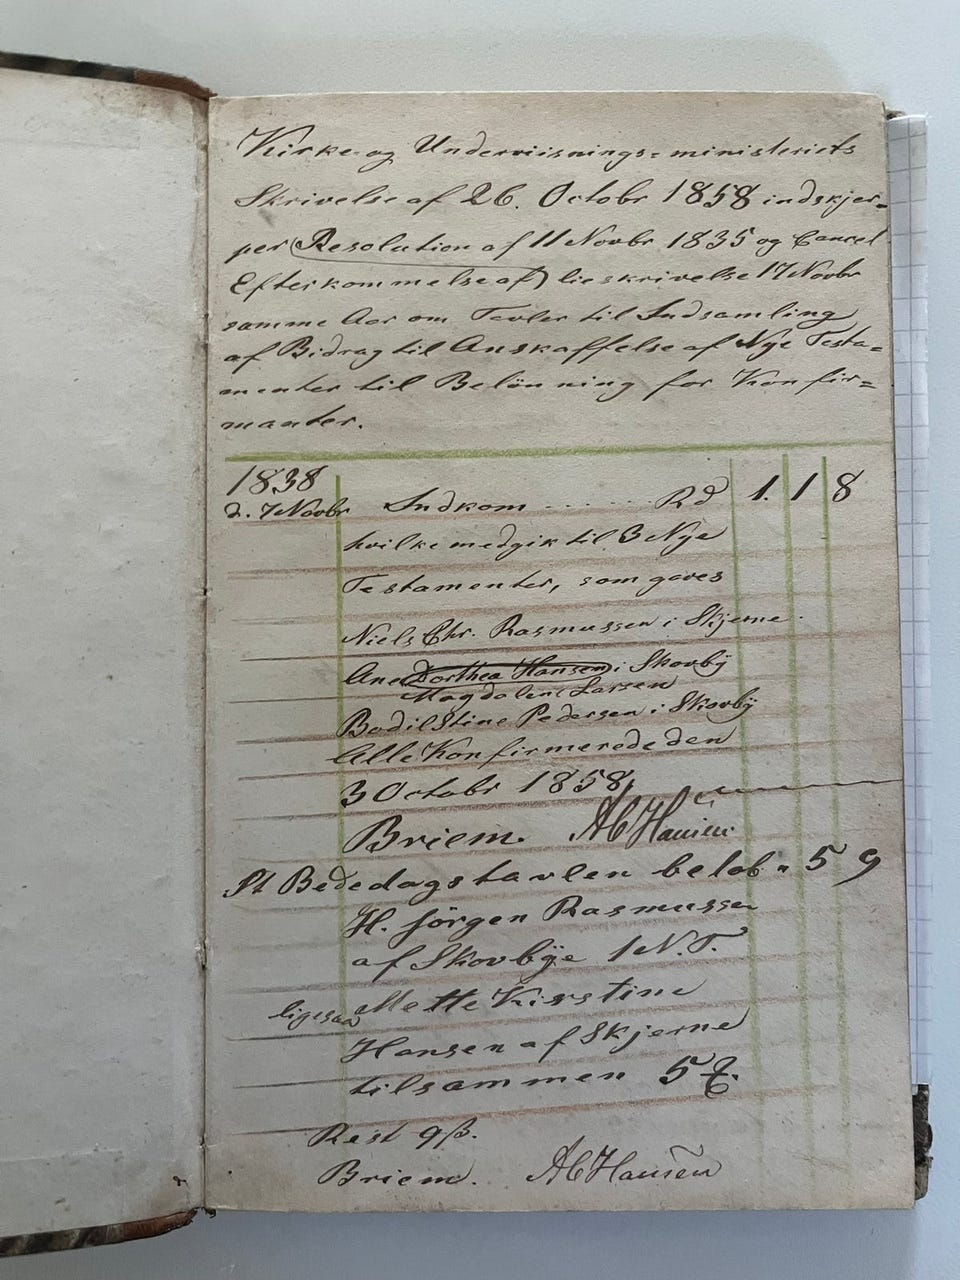 Kirke og Underviisnings=ministeriets
Skrivelse af 26. Octobr 1858 indskjer=
per (Resolution af 11 Novbr 1835 og Cancel
Efterkommelse af) lieskrivelse 17 Novbr
samme Aar om Tavler til Indsamling
af Bidrag til Anskaffelse af Nye Testa=
menter til Belönning for Konfir=
manter.
1838
d. 7 Novbr Indkom .... Rd 1. 1 8
hvilke medgik til 3 Nye
Testamenter, som gaves
Niels Chr. Rasmussen i Skjerne.
Ane Dorthea Hansen i Skovbÿ
Magdalene Larsen
Bodil Stine Pedersen i Skovbÿ
Alle Konfirmerede den
3 Octobr 1858,
Briem. AC Hansen
St Bededagstavlen beløb " 5 9
H. Jörgen Rasmussen
af Skovbÿe 1 N. T.
ligesaa Mette Kirstine
Hansen af Skjerne
tilsammen 5 ₰.
Rest 9 ß.
Briem. AC Hansen